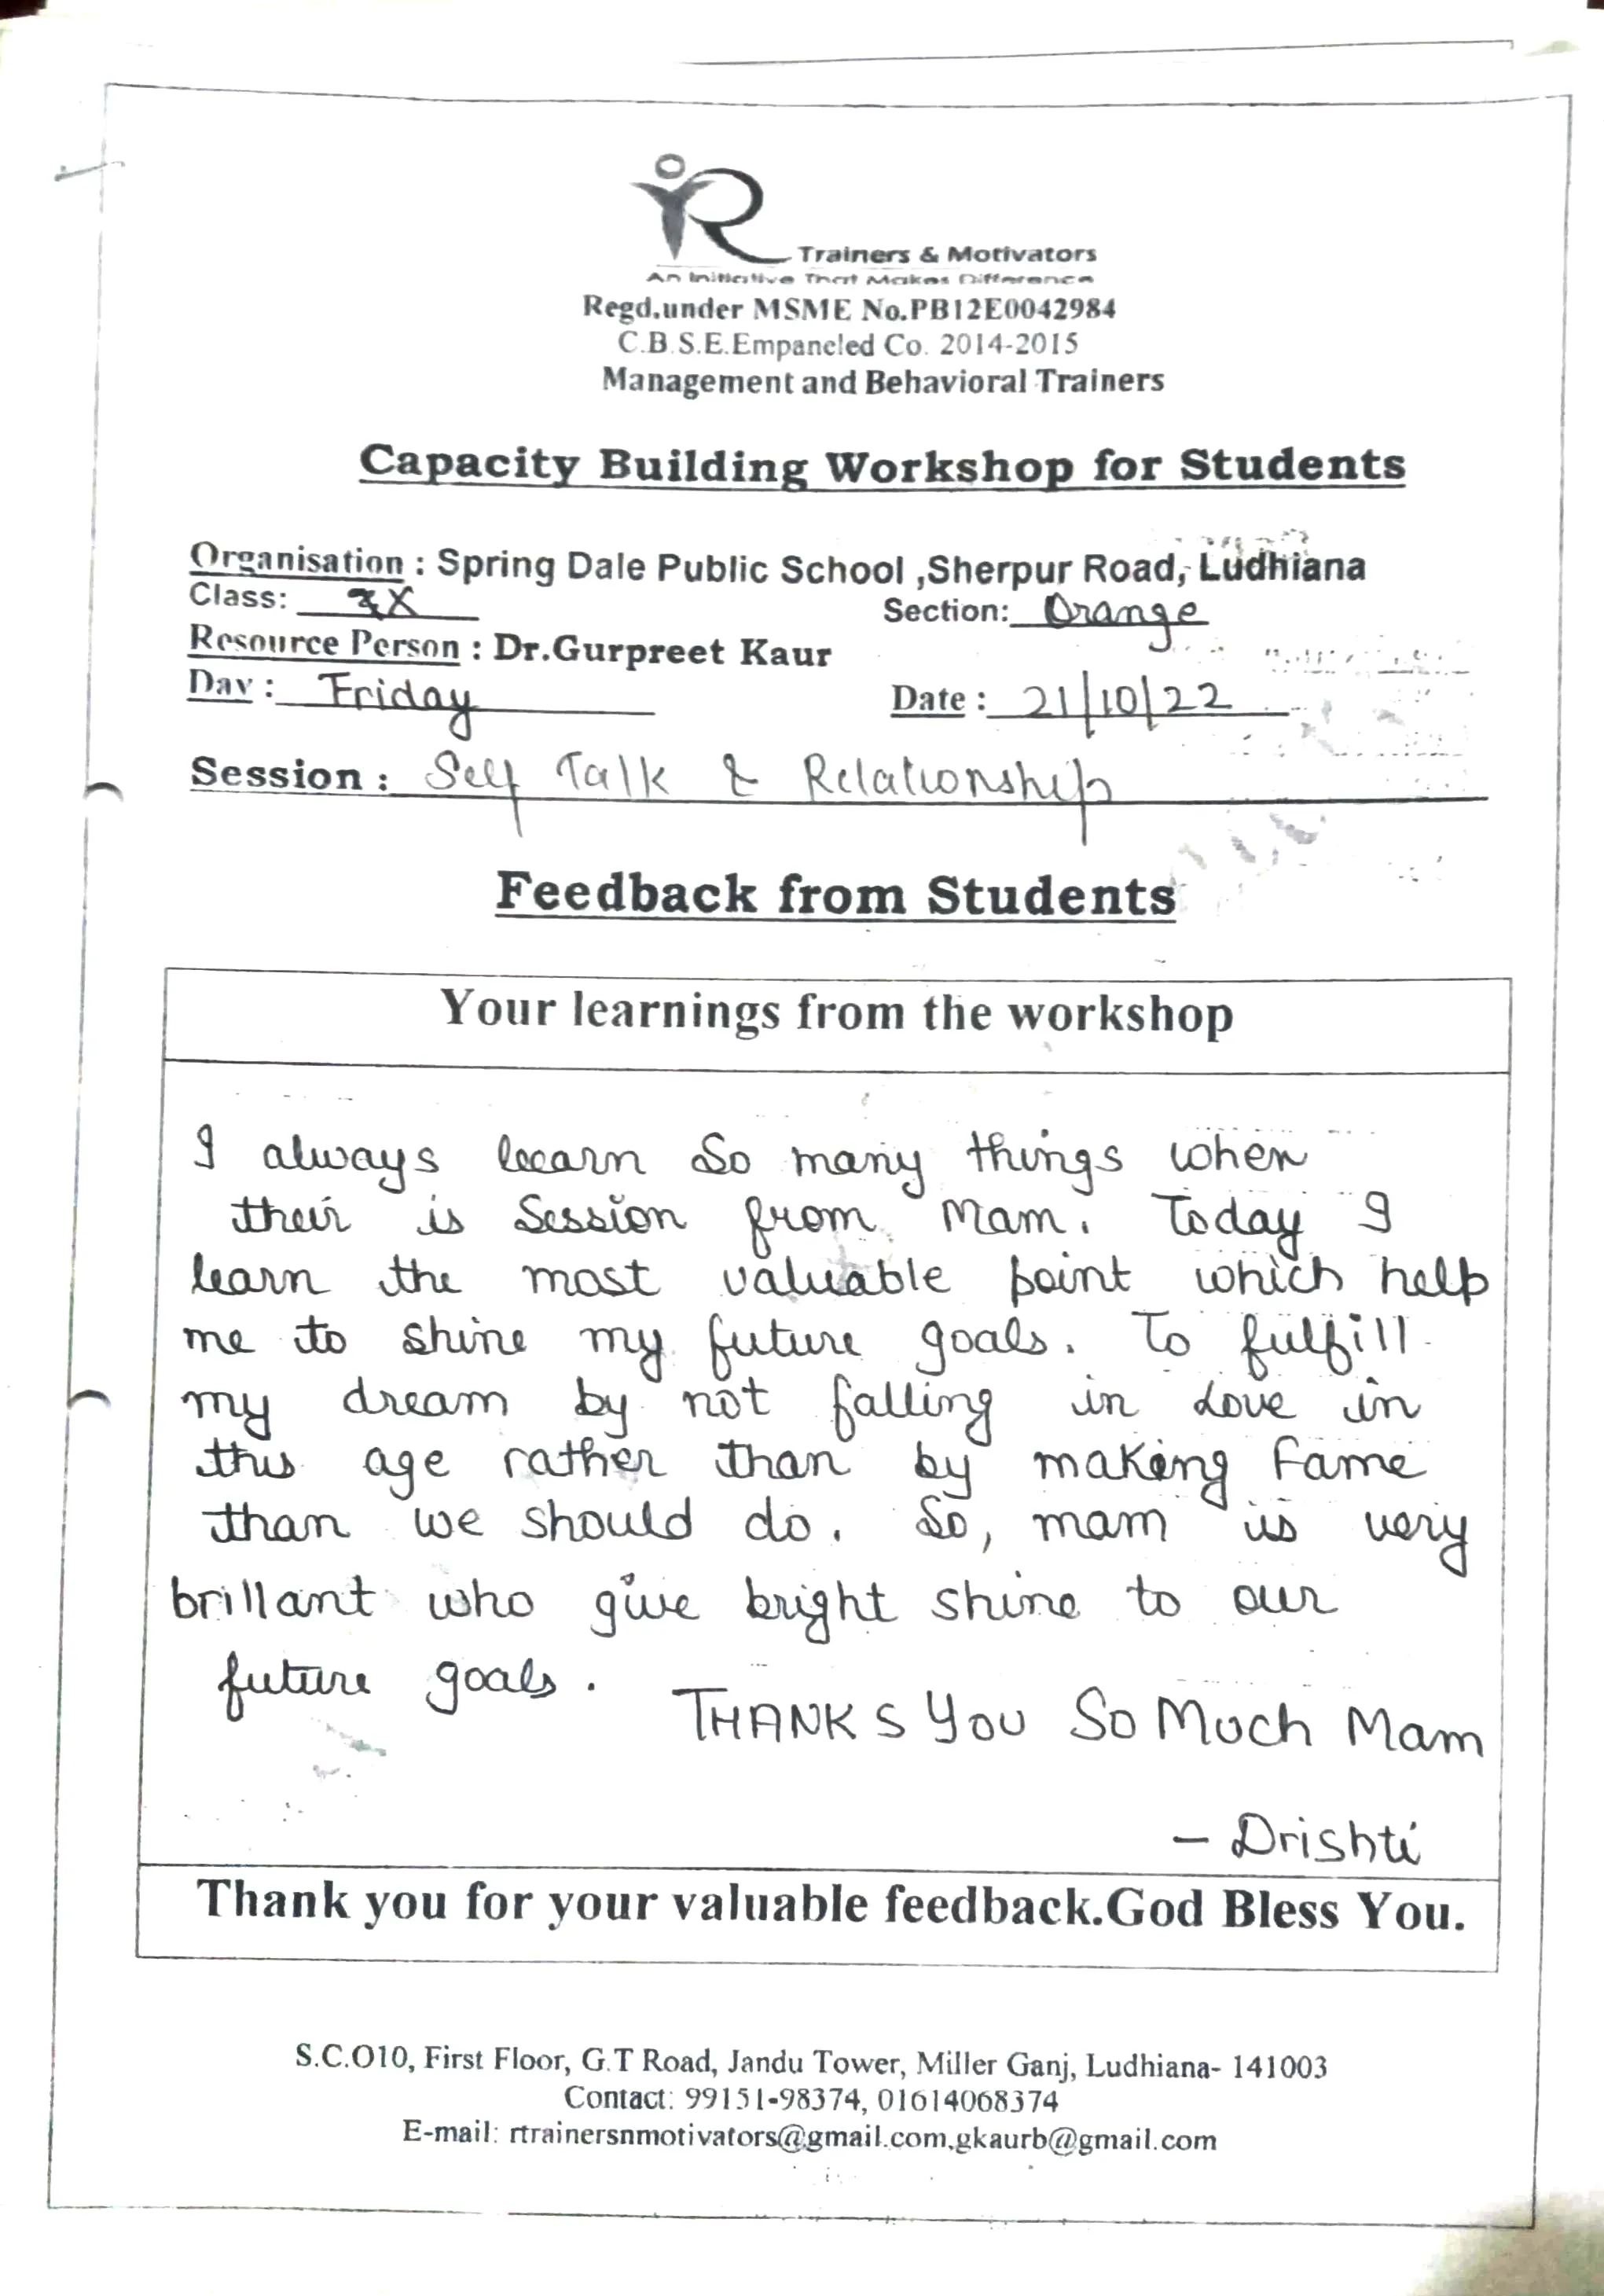 R Trainers & Motivators
An Initiative That Makes Difference
Regd.under MSME No.PB12E0042984
C.B.S.E.Empaneled Co. 2014-2015
Management and Behavioral Trainers
Capacity Building Workshop for Students
Organisation : Spring Dale Public School ,Sherpur Road, Ludhiana
Class: X Section: Orange
Resource Person : Dr.Gurpreet Kaur
Day : Friday Date : 21/10/22
Session : Self Talk & Relationship
Feedback from Students
Your learnings from the workshop
I always learn So many things when
their is Session from Mam. Today I
learn the most valuable point which help
me to shine my future goals. To fulfill
my dream by not falling in Love in
this age rather than by making Fame
than we should do. So, mam is very
brillant who give bright shine to our
future goals.
THANKS YOU SO MUCH MAM
- Drishti
Thank you for your valuable feedback.God Bless You.
S.C.O10, First Floor, G.T Road, Jandu Tower, Miller Ganj, Ludhiana- 141003
Contact: 99151-98374, 01614068374
E-mail: rtrainersnmotivators@gmail.com,gkaurb@gmail.com